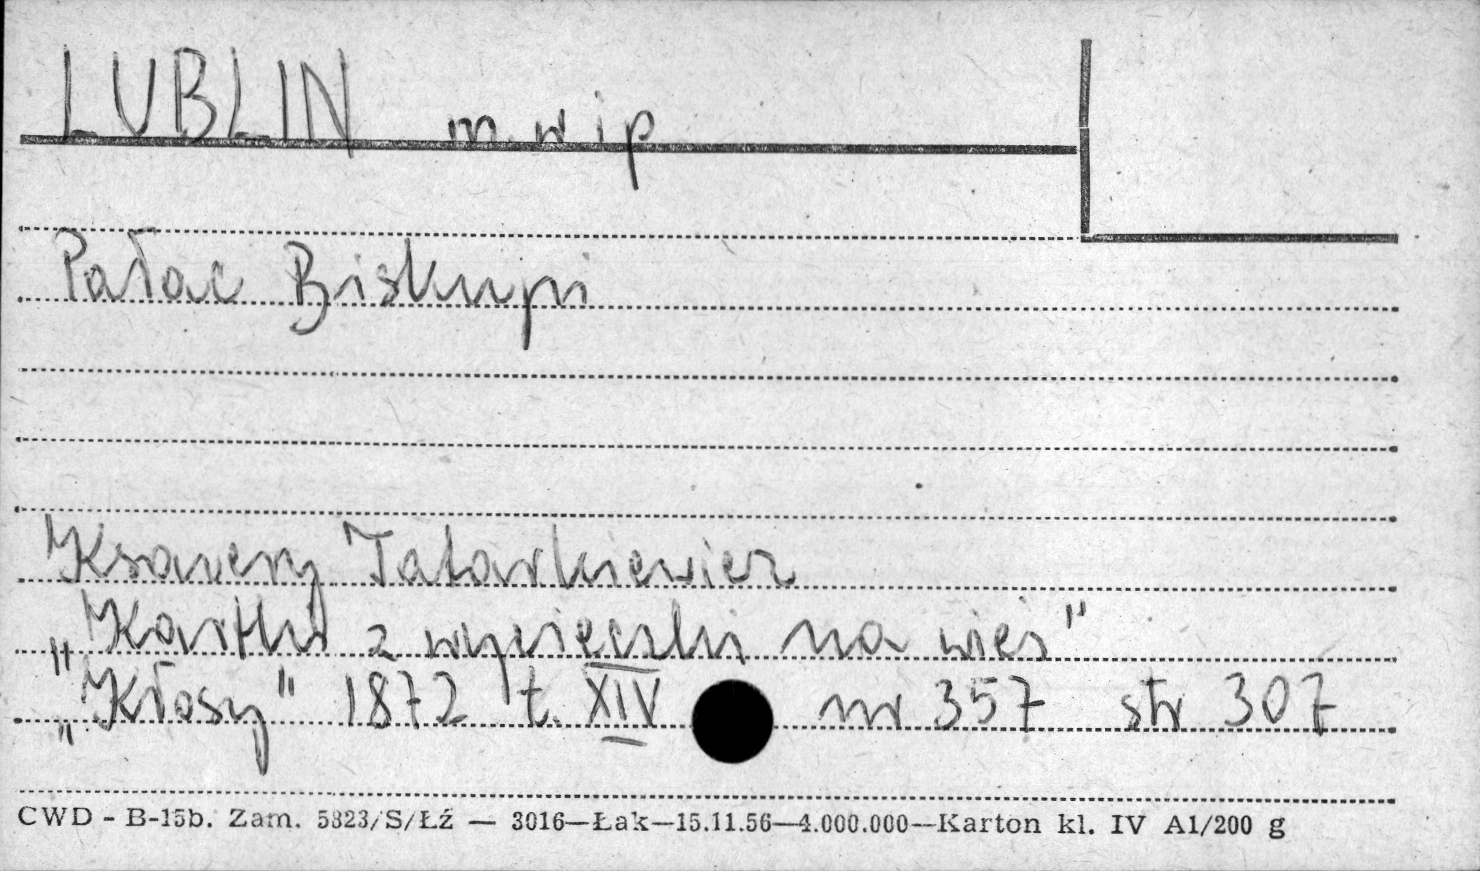 LUBLIN m. w i p
Pałac Biskupi
Ksawery Tatarkiewicz
„Kartki z wycieczki na wieś"
„Kłosy" 1872 t. XIV nr 357 str 307
CWD - B-15b. Zam. 5823/S/Łź — 3016—Łak—15.11.56—4.000.000—Karton kl. IV A1/200 g